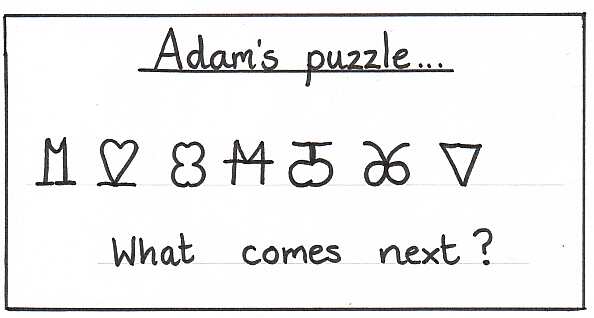 Adam's puzzle...
What comes next?